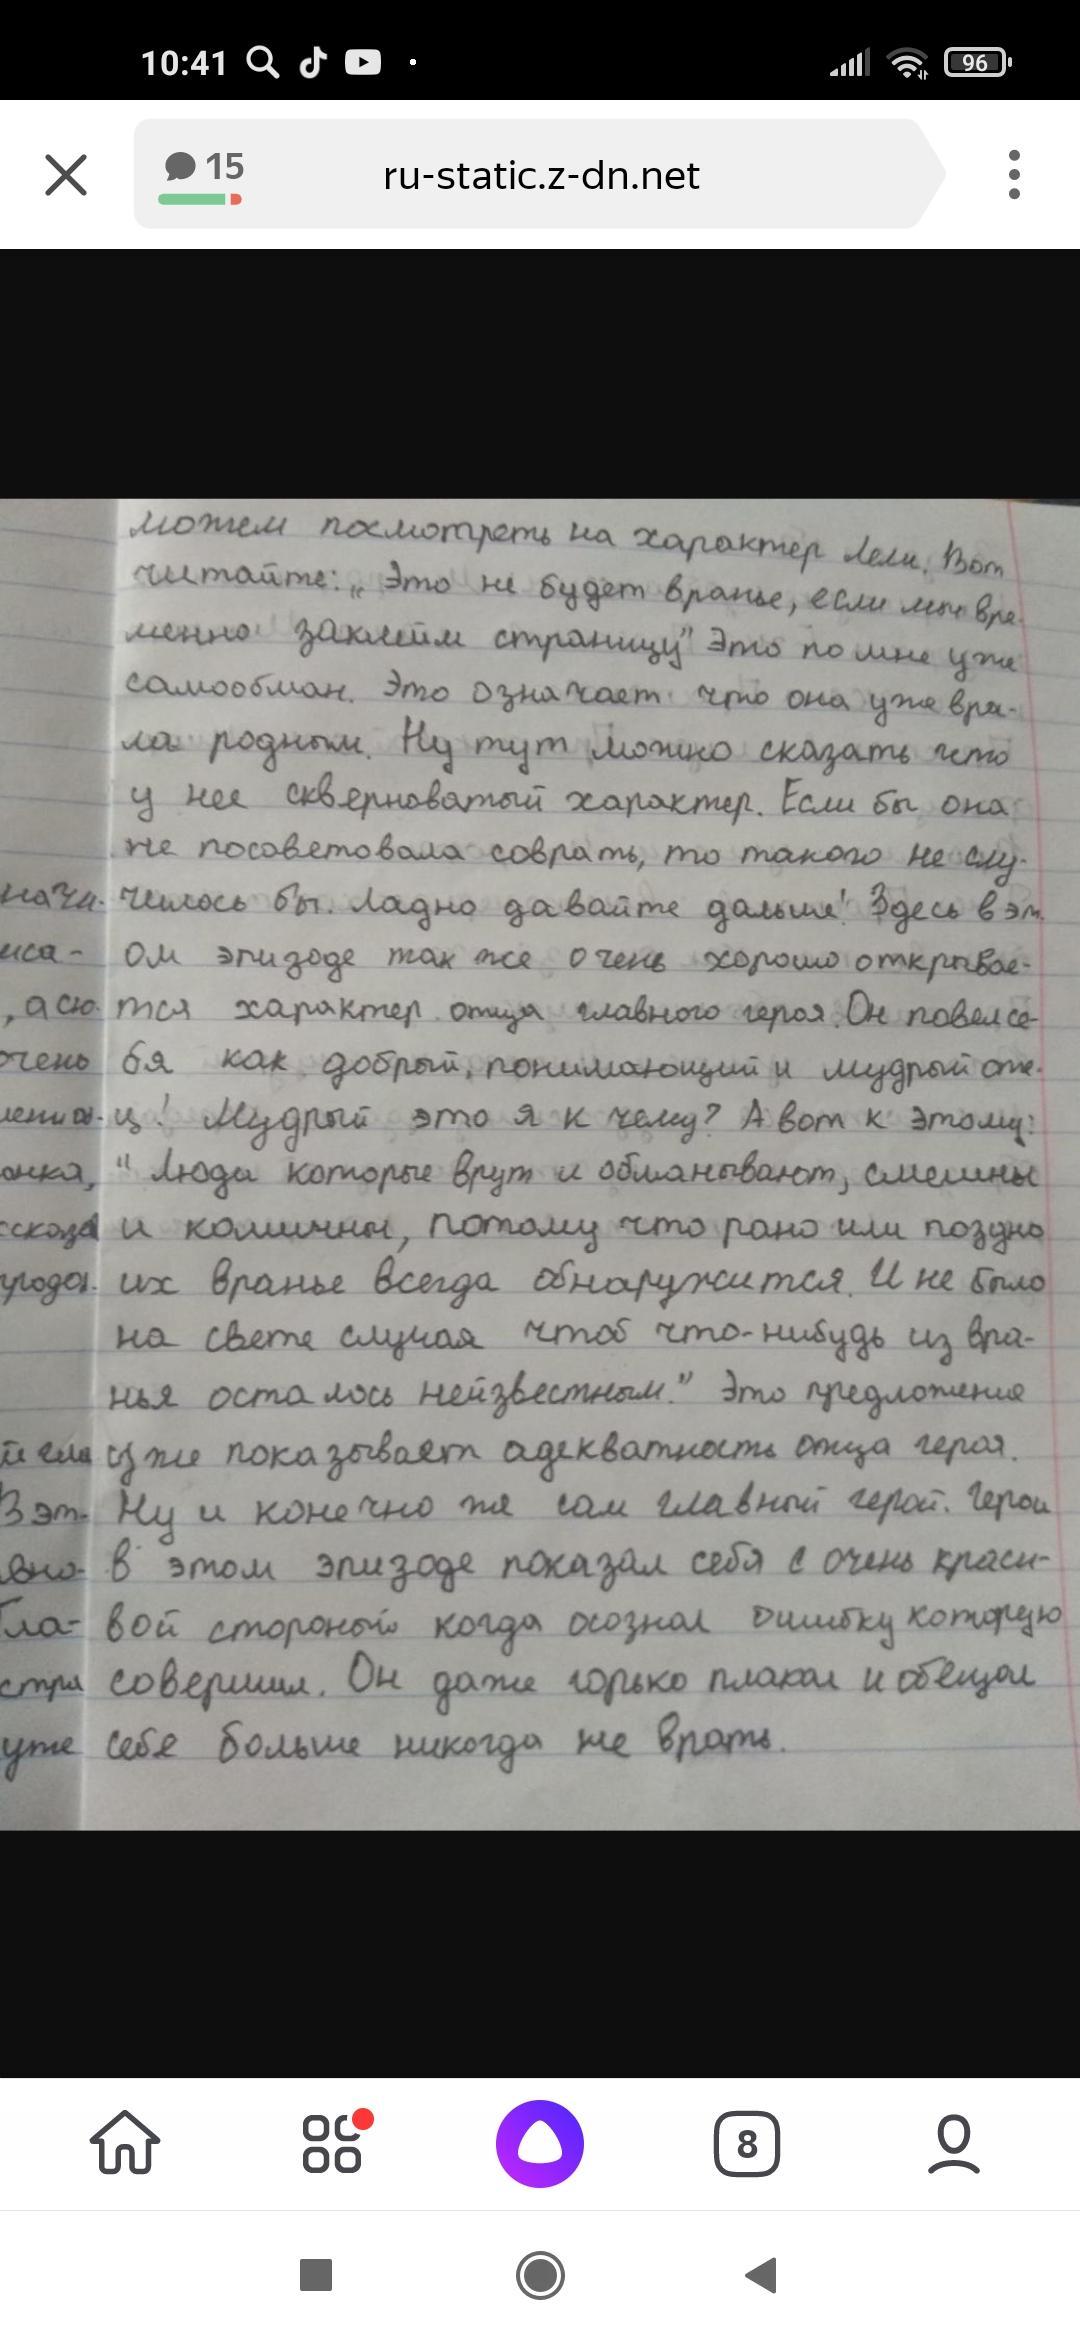 10:41
96
15
ru-static.z-dn.net
можем посмотреть на характер Лели. Вот
читайте: „Это не будет вранье, если мы вре-
менно заклеим страницу" Это по мне уже
самообман. Это означает что она уже вра-
ла родным. Ну тут можно сказать что
у нее скверноватый характер. Если бы она
не посоветовала соврать, то такого не слу-
начи- чилось бы. Ладно давайте дальше! Здесь в эт
иса- ом эпизоде так же очень хорошо открывае-
, а сю- тся характер отца главного героя. Он повел се-
очень бя как добрый, понимающий и мудрый оте-
ц! Мудрый это я к чему? А вот к этому:
онка, "Люди которые врут и обманывают, смешны
и комичны, потому что рано или поздно
их вранье всегда обнаружится. И не было
на свете случая чтоб что-нибудь из вра-
нья осталось неизвестным." Это предложение
уже показывает адекватность отца героя.
В эт- Ну и конечно же сам главный герой. Герой
в этом эпизоде показал себя с очень краси-
Гла- вой стороный когда осознал ошибку которую
стра совершил. Он даже горько плакал и обещал
уже себе больше никогда не врать.
8